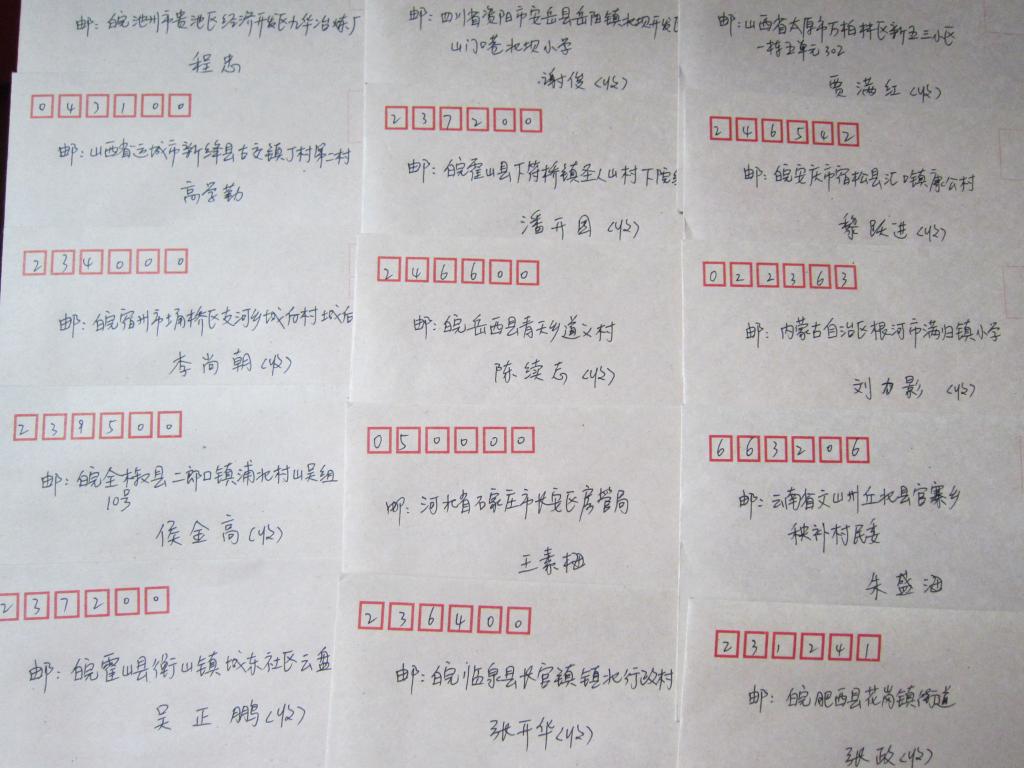 邮：皖池州市贵池区经济开发区九华冶炼厂
程忠
043100
邮：山西省运城市新绛县古交镇丁村第二村
高学勤
234000
邮：皖宿州市埇桥区支河乡城后村城后
李尚朝（收）
239500
邮：皖全椒县二郎口镇浦北村山吴组
10号
侯金高（收）
237200
邮：皖霍山县衡山镇城东社区云盘
吴正鹏（收）
邮：四川省资阳市安岳县岳阳镇北坝开发区
山门口巷北坝小学
谢俊（收）
237200
邮：皖霍山县下符桥镇圣人山村下院组
潘开国（收）
246600
邮：皖岳西县青天乡道义村
陈续志（收）
050000
邮：河北省石家庄市长安区房管局
王素梅
236400
邮：皖临泉县长官镇镇北行政村
张开华（收）
邮：山西省太原市万柏林区新五三小区
一栋五单元302
贾满红（收）
246542
邮：皖安庆市宿松县汇口镇康公村
黎跃进（收）
022363
邮：内蒙古自治区根河市满归镇小学
刘力影（收）
663206
邮：云南省文山州丘北县官寨乡
秧补村民委
朱盛海
231241
邮：皖肥西县花岗镇街道
张政（收）